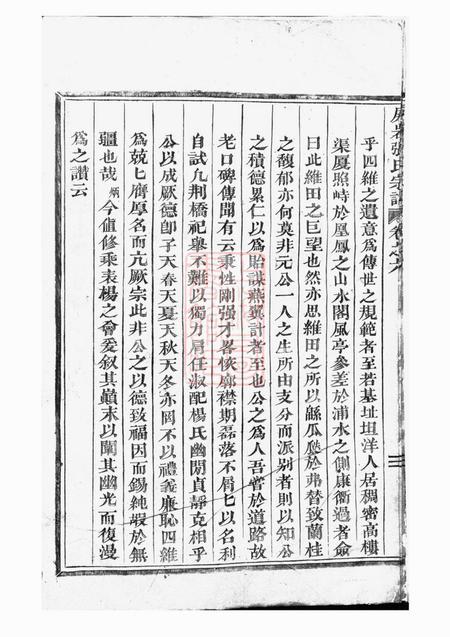 張氏宗譜
乎四維之遺意爲傳世之規範者至若基址坦洋人居稠密高樓
渠厦照峙於凰鳳之山水閣風亭參差於浦水之側康衢過者僉
曰此維田之巨望也然亦思維田之所以緜瓜瓞於弗替致蘭桂
之馥郁亦何莫非元公一人之生所由支分而派别者則以知公
之積德累仁以爲貽謀燕翼計者至也公之爲人吾嘗於道路故
老口碑傳聞有云秉性剛强才畧恢廓襟期磊落不屑七以名利
自試凢荆橋祀舉不難以獨力肩任淑配楊氏幽閒貞靜克相乎
公以成厥德卽子天春天夏天秋天冬亦罔不以禮義廉恥四維
爲兢七麿厚名而亢厥宗此非公之以德致福因而錫純嘏於無
疆也哉炳今值修乘表楊之會爰叙其巔末以闡其幽光而復漫
爲之讚云